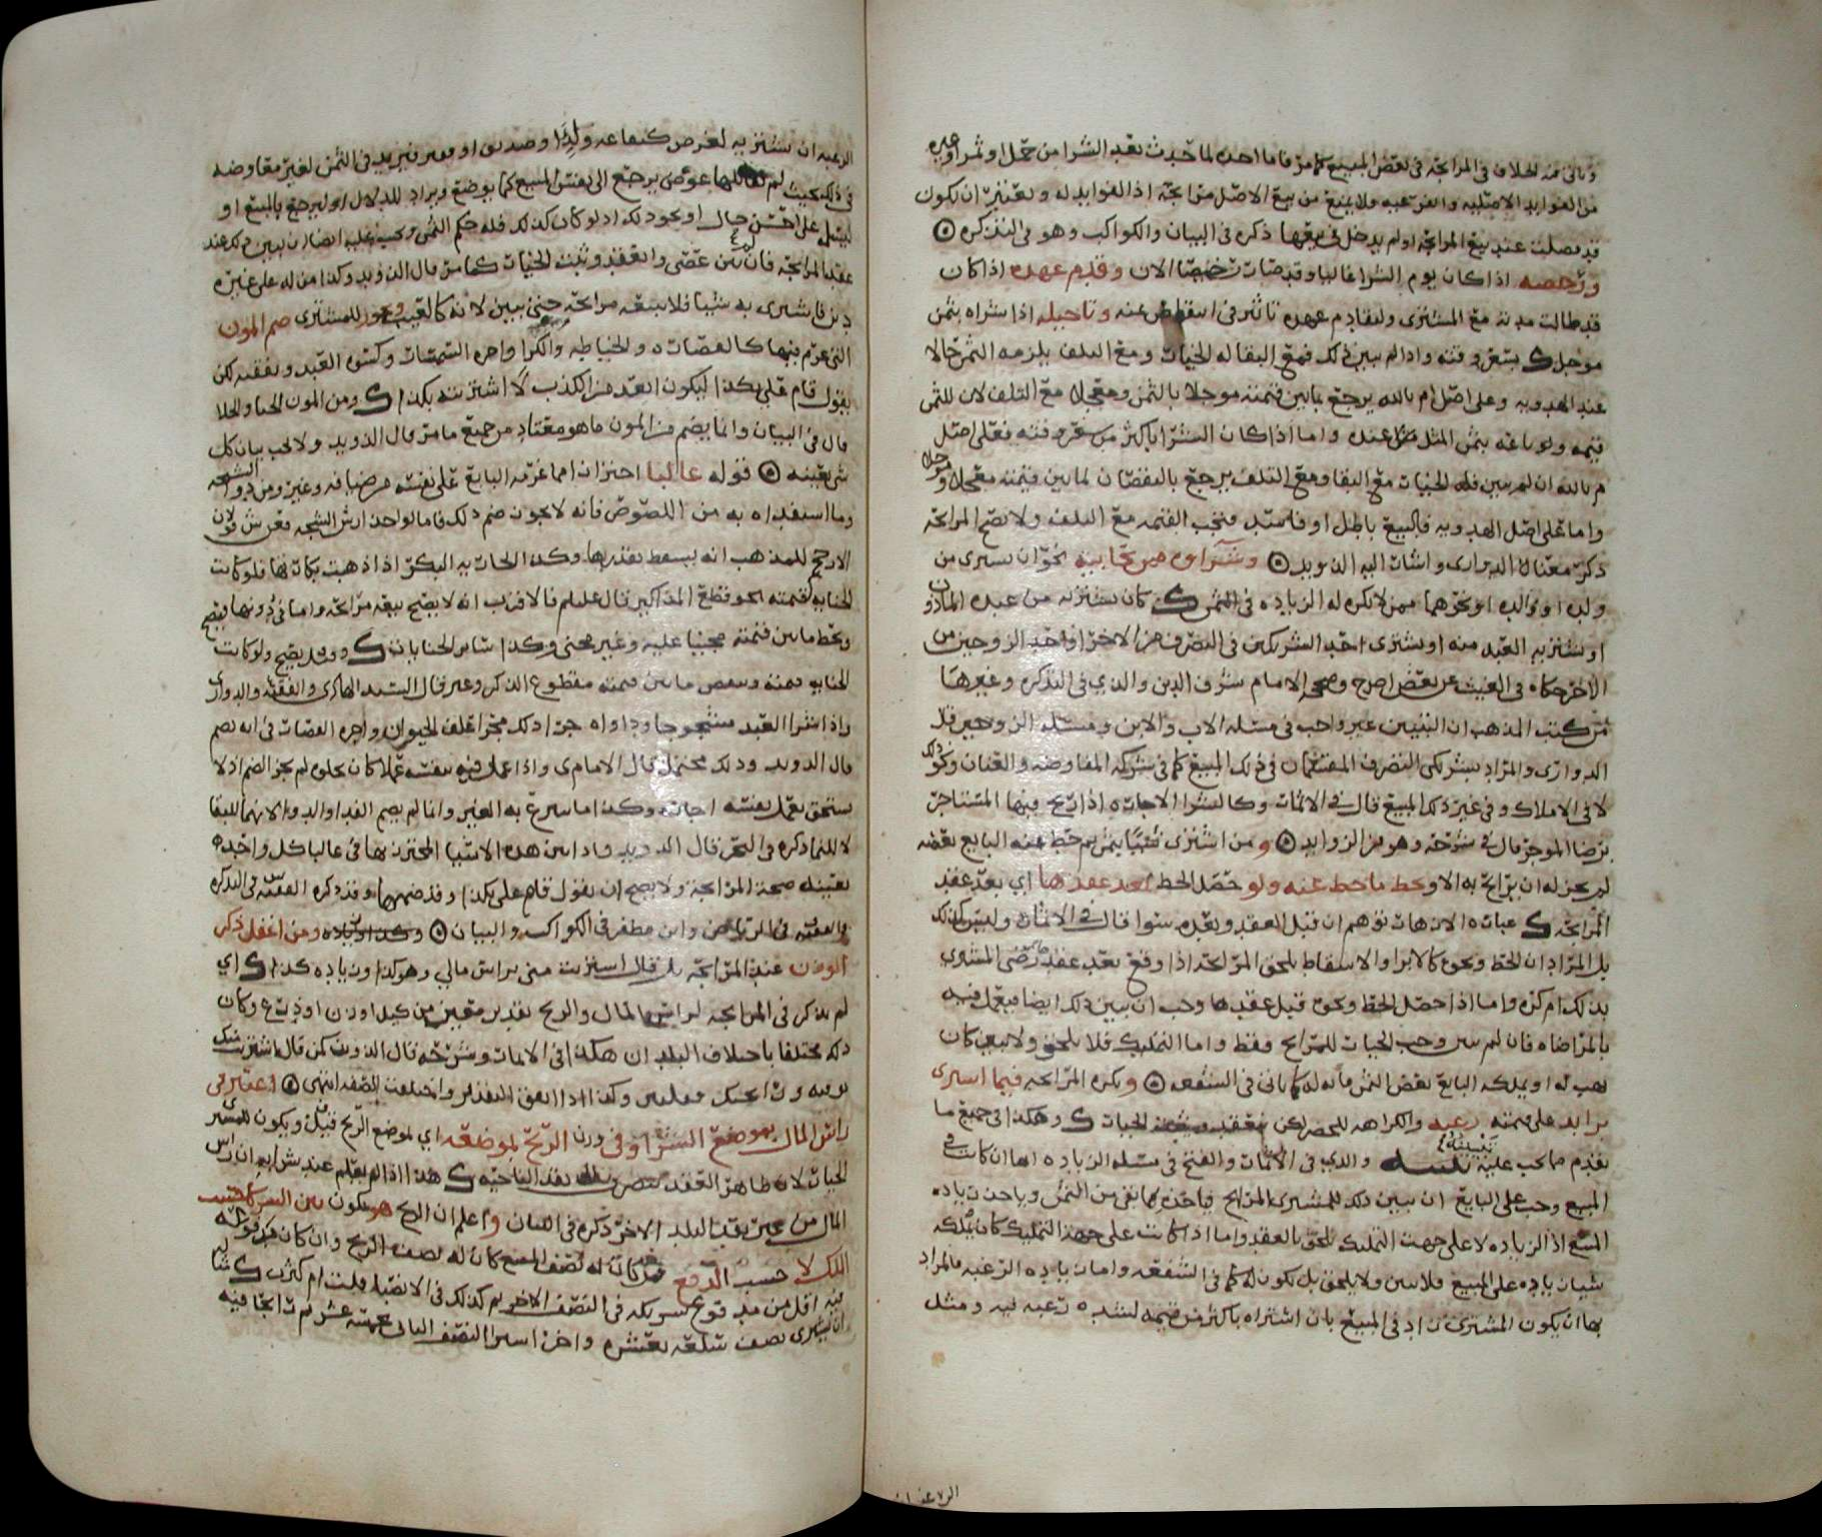 وياتي فيه الخلاف في المرابحة في بعض المبيع كما مر فاما اخذه لما حدث بعد الشرا من حمل او ثمر او غيره
من الفوايد الاصليه والفرعيه فلا يمنع من بيع الاصل مرابحة اذ الفوايد له ويعتبر ان يكون
قد فصلت عند بيع المرابحه او لم يدخل في بيعها ذكره في البيان والكواكب وهو في التذكره
ورخصه اذا كان يوم الشرا غاليا وقد صات رخيصا الان وقدم عهده اذا كان
قد طالت مدته مع المشتري ولتقادم عهده تاثير في اسقاط عنه وتاجيله اذا شراه بثمن
موجل ك بسعر وقته واذا لم يبين ذلك فمع البقا له الخيات ومع التلف يلزمه الثمن حالا
عند الهدويه وعلى اصل م بالله يرجع بما بين قيمته موجلا بالثمن ومعجلا مع التلف لان للثمن
قيمه ولو باعه بثمن المثل عنده واما اذا كان الشرا باكثر من سعر وقته فعلى اصل
م بالله ان لم يبين فله الخيات مع البقا ومع التلف يرجع بالنقصان لما بين قيمته معجلا وموجلا
واما على اصل الهدويه فالبيع باطل او فاسد فتجب القيمه مع التلف ولا تصح المرابحه
ذكر معناه الدواري واشات اليه الذويد وشراه ممن يحابيه نحو ان يسرى من
ولده او والده او نحوهما ممن لا نكره له الزياده في الثمن ك كان يشتريه من عبده الماذون
او يشتريه العبد منه او يشتري احد الشريكين في التصرف من الاخر او احد الزوجين من
الاخر حكاه في الغيث عن بعض اصح وصححه الامام شرف الدين والذي في التذكره وغيرها
من كتب المذهب ان التبيين غير واجب في مسئله الاب والابن ومسئله الزوجين قال
الدواري والمراد بشريكي التصرف المتفقان في ذلك المبيع كما في شركه المفاوضه والعنان ونحو ذلك
لا في الاملاك وفي غير ذلك المبيع قال في الاثمات وكالشرا الاجاته اذا اربح فيها المستاجر
برضا الموجر قال في شرحه وهو من الزوايد ومن اشترى شيئا بثمن ثم حط عنه البايع بعضه
لم يجز له ان يرابح به الا ويحط ما حط عنه ولو حصل الحط بعد عقدها اي بعد عقد
المرابحه ك عباته الازهات توهم ان قبل العقد وبعده سوا قال في الاثمات وليس كذلك
بل المراد ان الحط ونحوه كالابرا والاسقاط يلحق المرابحه اذا وقع بعد عقد ما رضي المشتري
بذلك ام كره واما اذا حصل الحط ونحوه قبل عقدها وجب ان يبين ذلك ايضا فيعمل فيه
بالمراضاه فان لم يبين وجب الخيات للمرابح فقط واما التمليك فلا يلحق ولا يبين كان
يهب له او يملكه البايع بعض الثمن فانه له كما ياتي في الشفعه وتكره المرابحه فيما اشتري
بزايد على قيمته رغبه والكراهه للحضر لكن ينعقد ويثبت الخيات ك وهكذا في جميع ما
تقدم مما يجب عليه تبيينه والذي في الاثمات والفتح في مسئله الزياده انها ان كانت في
المبيع وجب على البايع ان يبين ذلك للمشتري المرابح فياخذه بما بقي من الثمن وياخذ زياده
المبيع اذ الزياده لا على جهت التمليك تلحق بالعقد واما اذا كانت على جهة التمليك كان يملكه
شيات ياده على المبيع فلا يبين ولا يلحق بل يكون له كما في الشفعه واما زياده الرغبه فالمراد
بها ان يكون المشتري زاد في المبيع بان اشتراه باكثر من قيمته لشده رغبه فيه ومثل
الرغبه ان يشتريه لغرض كنفاعه ولده او صديق او فقير فيزيد في الثمن لغير مفاوضه
في ذلك بحيث لم يقابلها عوض يرجع الى نفس المبيع كما يوضع ويراد للدلال او ليرجع بالمبيع او
ليسلم على احسن حال او نحو ذلك اذ لو كان كذلك فله حكم الثمن ويجب عليه ايضا ان يبين ذلك عند
عقد المرابحه فان لم يبين عصى وانعقد وثبت الخيات كما مر قال الذويد وكذا من له على غيره
دين فاشترى به شيئا فلا يبيعه مرابحه حتى يبين لانه كالعيب ويجوز للمشتري ضم المون
التي غرم فيها كالقصاته والخياطه والكرا واجره السمسات وكسوه العبد ونفقته لكن
يقول قام علي بكذا ليكون ابعد من الكذب لا اشتريته بكذا ك ومن المون الحنا والجلا
قال في البيان وانما يضم من المون ما هو معتاد من جميع ما مر قال الذويد ولا يجب بيان كل
شي بعينه قوله غالبا احترازا مما غرمه البايع على نفسه من ضيافه وغيره ومن دوا الشجه
وما استفداه به من اللصوص فانه لا يجوز ضم ذلك فاما لو اخذ ارش الشجه فعن ش قولان
الارجح للمذهب انه يسقط بقدرها وكذا الجات يه البكر اذا ذهبت بكاتها فلو كانت
الجنايه لقيمته نحو قطع المذاكير قال علهم فالاقرب انه لا يصح بيعه مرابحه واما في دونها فيصح
ويحط ما بين قيمته مجنيا عليه وغير مجني وكذا ساير الجنايات ك وقد يصح ولو كانت
الجنايه قيمته وينقص ما بين قيمته مقطوع الذكر وغيره قال السيد الهادي والفقيه والدواري
واذا اشترا العبد مشجوجا وداواه جرا ذلك مجرا علف الحيوان واجره القصات في انه يضم
قال الذويد وذلك محتمل قال الامام ي واذا عمل فيه بنفسه عملا كان يخلوه لم يجز الضم اذ لا
يستحق بعمل نفسه اجات ه وكذا ما تبرع به الغير وانما لم يضم الفدا والدوا لانهما للبقا
لا للنما ذكره في البحر قال الذويد واذا بين هذه الاشيا المحترز بها في غالبا كل واحده
بعينه صحة المرابحة ولا يصح ان يقول قام علي بكذا وقد ضمها وقد ذكره الفقيه س في التذكره
والفقيه في الرياض وابن مظفر في الكواكب والبيان ومن اغفل ذكر
الوزن عند المرابحه بل قال اشتريت مني براس مالي وهو كذا وزياده كذا ك اي
لم يذكر في المرابحه لراس المال والربح تقدير معين من كيل او وزن او ذرع وكان
ذلك مختلفا باختلاف البلد ان هكذا في الاثمات وشرحه قال الذويد كمن قال اشتريت منك
بوقيه وربح كذا وكذا اذا اتفق التقدير واختلفت الصفه انتهى اعتبر في
راس المال بموضع الشرا وفي وزن الربح بموضعه اي لموضع الربح قيل ويكون للمشتري
الخيات لان ظاهر العقد ينصرف الى نقد الناحيه ك هذا اذا لم يعلم عند شرايه ان راس
المال من غير نقد البلد الاخر ذكره في البيان واعلم ان الربح هو يكون بين الشركا حسب
الملك لا حسب الدفع فمن كان له نصف المبيع كان له نصف الربح وان كان
فيه اقل من مدفوع شريكه في النصف الاخر ثم كذلك في الانصبا قلت ام كثرت ك مثاله
ان يشتري نصف سلعه بعشره واخر اشترا النصف الثاني بخمسة عشر ثم ت ابحا فيه